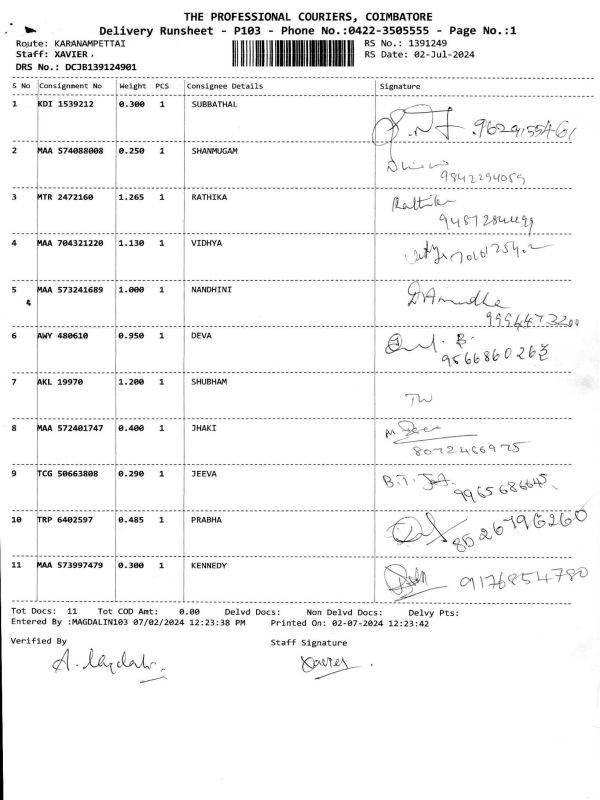 THE PROFESSIONAL COURIERS, COIMBATORE
Delivery Runsheet - P103 - Phone No.:0422-3505555 - Page No.:1
Route: KARANAMPETTAI RS No.: 1391249
Staff: XAVIER RS Date: 02-Jul-2024
DRS No.: DCJB139124901
S No Consignment No Weight PCS Consignee Details Signature
1 KDI 1539212 0.300 1 SUBBATHAL
9629155461
2 MAA 574088008 0.250 1 SHANMUGAM
9842294059
3 MTR 2472160 1.265 1 RATHIKA Rathika
4 MAA 704321220 1.130 1 VIDHYA
5 MAA 573241689 1.000 1 NANDHINI
9994473200
6 AWY 480610 0.950 1 DEVA
9566860263
7 AKL 19970 1.200 1 SHUBHAM
TW
8 MAA 572401747 0.400 1 JHAKI
8072466975
9 TCG 50663808 0.290 1 JEEVA B.T.
9965686645
10 TRP 6402597 0.485 1 PRABHA
8526796260
11 MAA 573997479 0.300 1 KENNEDY
9176854780
Tot Docs: 11 Tot COD Amt: 0.00 Delvd Docs: Non Delvd Docs: Delvy Pts:
Entered By :MAGDALIN103 07/02/2024 12:23:38 PM Printed On: 02-07-2024 12:23:42
Verified By Staff Signature
Xavier